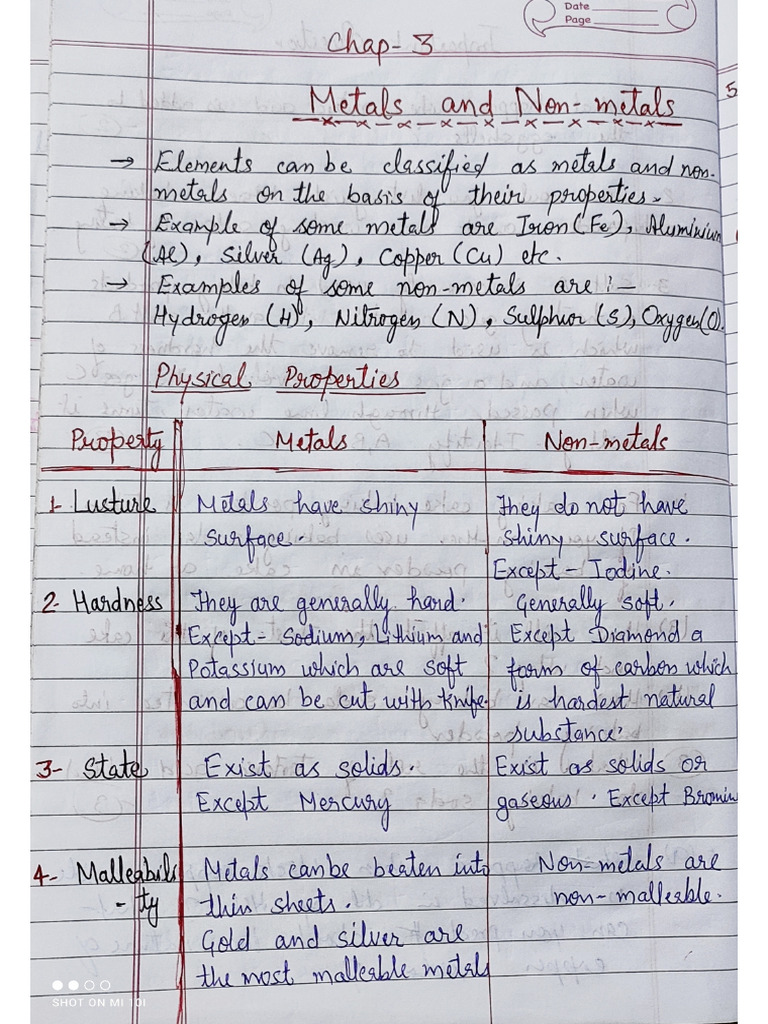 Date
Page
Chap- 3
Metals and Non-metals
→ Elements can be classified as metals and non-
metals on the basis of their properties.
→ Example of some metals are Iron (Fe), Aluminium
(Al), Silver (Ag), Copper (Cu) etc.
→ Examples of some non-metals are :-
Hydrogen (H), Nitrogen (N), Sulphur (S), Oxygen (O).
Physical Properties
Property Metals Non-metals
1- Lusture Metals have shiny They do not have
surface. shiny surface.
Except - Iodine.
2- Hardness They are generally hard. Generally soft.
Except - Sodium, Lithium and Except Diamond a
Potassium which are soft form of carbon which
and can be cut with Knife. is hardest natural
substance.
3- State Exist as solids. Exist as solids or
Except Mercury gaseous. Except Bromin
4- Malleabili Metals canbe beaten into Non-metals are
- ty thin sheets. non-malleable.
Gold and silver are
the most malleable metals
5
SHOT ON MI 10I